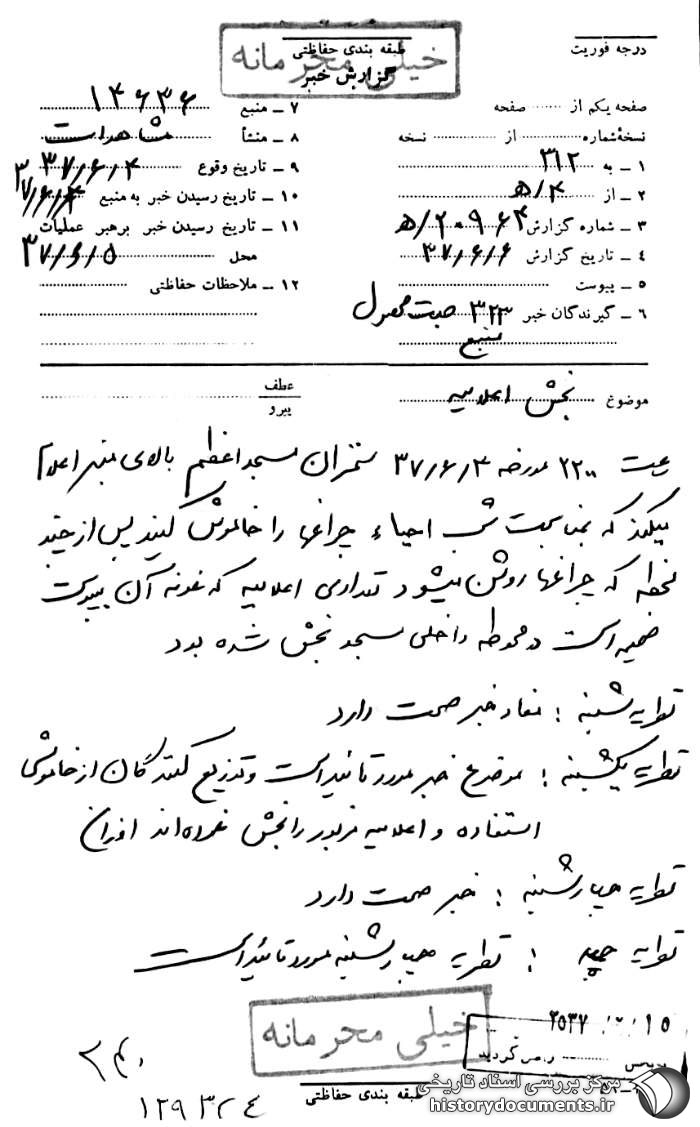 درجه فوریت
طبقه بندی حفاظتی
خیلی محرمانه
گزارش خبر
صفحه یکم از ........ صفحه
نسخهٔ شماره ............ از ............ نسخه
۱ – به ۳۱۲
۲ – از ۴/ﻫ
۳ – شماره گزارش ۲۰۹۶۴/ﻫ
۴ – تاریخ گزارش ۳۷/۶/۶
۵ – پیوست
۶ – گیرندگان خبر ۳۲۳ جهت معمول
منبع
۷ – منبع ۱۴۶۳۶
۸ – منشأ مشاهدات
۹ – تاریخ وقوع ۳۷/۶/۴
۱۰ – تاریخ رسیدن خبر به منبع ۳۷/۶/۴
۱۱ – تاریخ رسیدن خبر برهبر عملیات
محل ۳۷/۶/۵
۱۲ – ملاحظات حفاظتی
موضوع پخش اعلامیه
عطف
پیرو
ساعت ۲۲۰۰ مورخه ۳۷/۶/۴ سخنران مسجد اعظم بالای منبر اعلام
میکند که بمناسبت شب احیاء چراغها را خاموش کنید پس از چند
لحظه که چراغها روشن میشود تعدادی اعلامیه که نمونه آن به پیوست
ضمیمه است در محوطه داخلی مسجد پخش شده بود
نظریه شنبه : مفاد خبر صحت دارد
نظریه یکشنبه : موضوع خبر مورد تائید است و توزیع کنندگان از خاموشی
استفاده و اعلامیه مزبور را پخش نموده‌اند
نظریه چهارشنبه : خبر صحت دارد
نظریه جمعه : نظریه چهارشنبه مورد تائید است
خیلی محرمانه
طبقه بندی حفاظتی
۱۲۹۳۲٤
مرکز بررسی اسناد تاریخی
historydocuments.ir